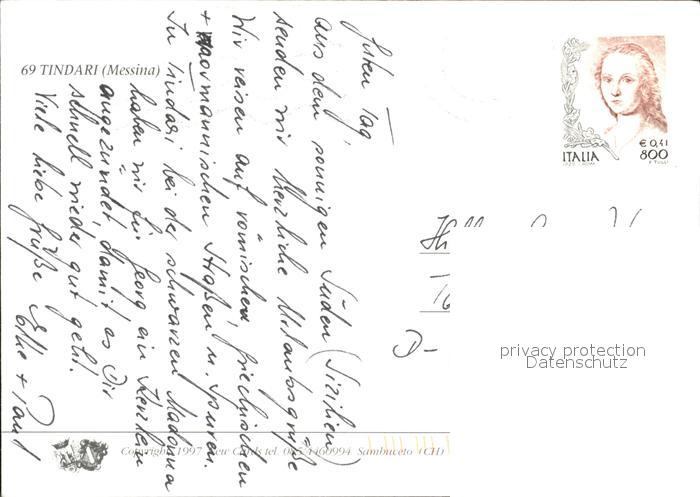 69 TINDARI (Messina)
Guten Tag,
aus dem sonnigen Süden (Sizilien)
senden wir herzliche Urlaubsgrüße
Wir reisen auf römischen, griechischen
+ normannischen Straßen u. Spuren.
In Tindari bei der schwarzen Madonna
haben wir für Georg ein Kerzlein
angezündet, damit es Dir
schnell wieder gut geht.
Viele liebe Grüße Elke + Paul
ITALIA
€ 0,41
800
D-
privacy protection
Datenschutz
Copyright 1997 New Cards tel. 085/4460994 Sambuceto (CH)